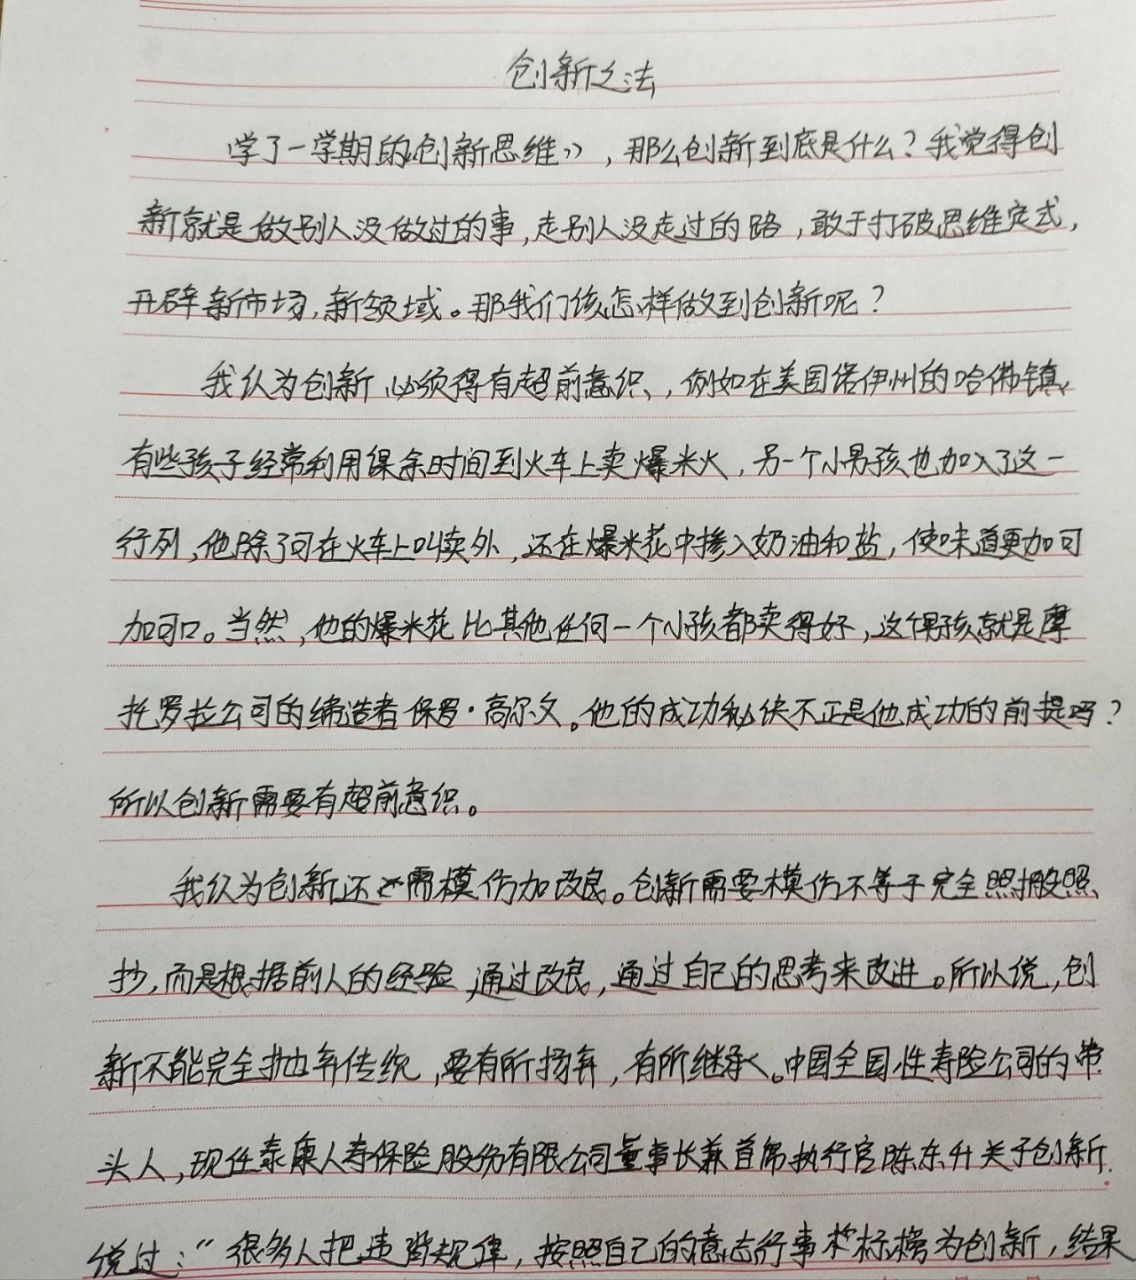 创新之法
学了一学期的《创新思维》，那么创新到底是什么？我觉得创
新就是做别人没做过的事，走别人没走过的路，敢于打破思维定式，
开辟新市场，新领域。那我们该怎样做到创新呢？
我认为创新必须得有超前意识、，例如在美国诺伊州的哈佛镇，
有些孩子经常利用课余时间到火车上卖爆米火，另一个小男孩也加入了这一
行列，他除了可在火车上叫卖外，还在爆米花中掺入奶油和盐，使味道更加可
加可口。当然，他的爆米花比其他任何一个小孩都卖得好，这个男孩就是摩
托罗拉公司的缔造者保罗·高尔文。他的成功秘诀不正是他成功的前提吗？
所以创新需要有超前意识。
我认为创新还需模仿加改良。创新需要模仿不等于完全照搬照
抄，而是根据前人的经验，通过改良，通过自己的思考来改进。所以说，创
新不能完全抛弃传统，要有所扬弃，有所继承。中国全国性寿险公司的带
头人，现任泰康人寿保险股份有限公司董事长兼首席执行官陈东升关于创新
说过：“很多人把违背规律，按照自己的意志行事标榜为创新，结果